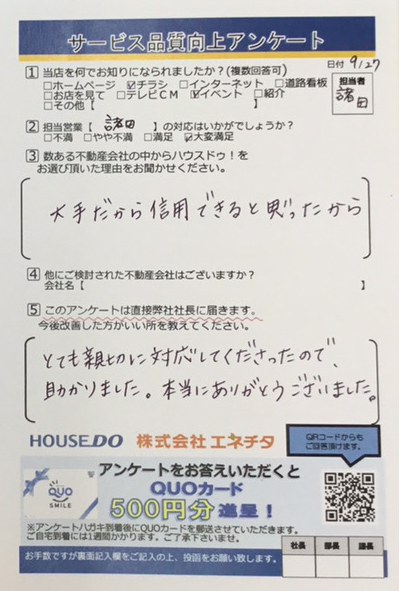 サービス品質向上アンケート
日付 9/27
1 当店を何でお知りになられましたか？(複数回答可)
□ホームページ ☑チラシ □インターネット □道路看板
□お店を見て □テレビCM ☑イベント □紹介
□その他【 】
担当者
諸田
2 担当営業【 諸田 】の対応はいかがでしょうか？
□不満 □やや不満 □満足 ☑大変満足
3 数ある不動産会社の中からハウスドゥ！を
お選び頂いた理由をお聞かせください。
大手だから信用できると思ったから
4 他にご検討された不動産会社はございますか？
会社名【 】
5 このアンケートは直接弊社社長に届きます。
今後改善した方がいい所を教えてください。
とても親切に対応してくださったので、
助かりました。本当にありがとうございました。
HOUSEDO 株式会社エネチタ
QRコードからも
ご回答頂けます。
QUO
SMILE
アンケートをお答えいただくと
QUOカード
500円分 進呈！
※アンケートハガキ到着後にQUOカードを郵送させていただきます。
ご自宅到着には1週間かかります。ご了承下さいませ。
お手数ですが裏面記入欄をご記入の上、投函をお願い致します。
社長 部長 課長